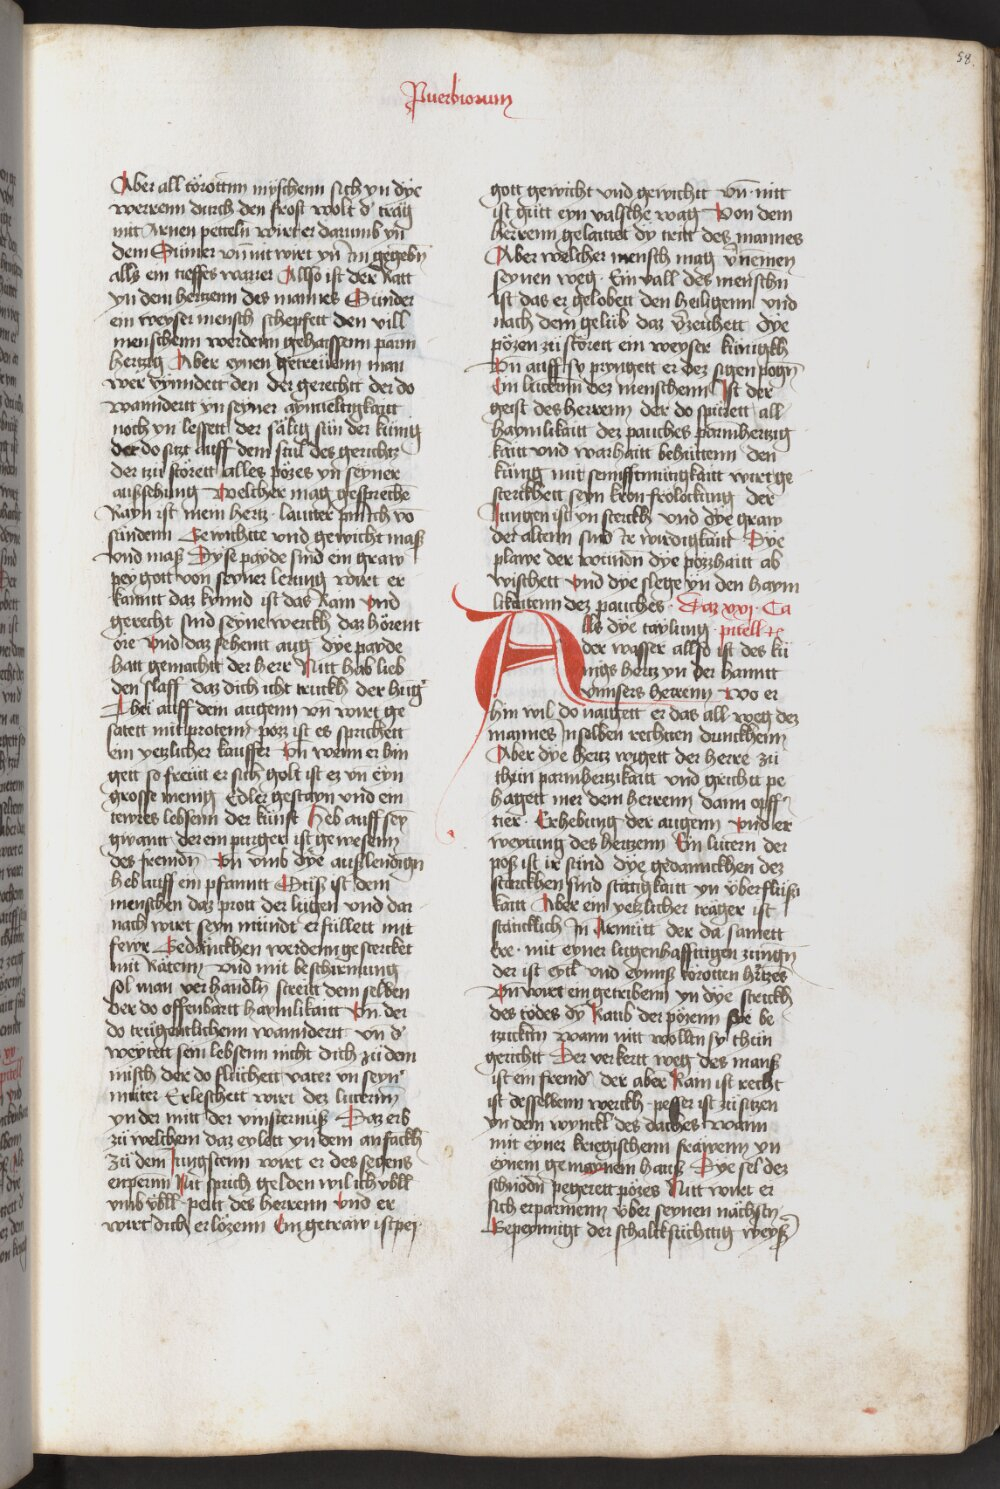 58.
Puerbiorum
Aber all törottnn myschenn sich yn dye
werrenn durch den frost wolt d' träg
nit Arnen petteln wirt er darumb yn
dem Sumer vnnd nit wirt yn Im gegebn
alls ein tieffes wasser Allso ist der Ratt
yn dem hertzenn des mannes Sunder
ein weyser mensch schepfett den vill
menschenn werdenn gehaissenn parm
hertzig Aber eynen getrewenn man
wer vynndett den der gerecht der do
wanndertt yn seyner aynueltigkaitt
noch yn lessett der sälig sün der künig
der do sitzt auff dem stul des gerichtz
der zü störett alles pözes yn seyner
außsehung Welcher mag gesprechē
Rayn ist mein hertz lautter pin ich vō
sündenn Gewichtte vnd gewicht maß
vnd maß Dyse payde sind ein graw
pey gott von seyner lerung wirt er
kannt daz kynnd ist das Rain vnd
gerecht sind seyne werckh daz hörent
öre vnd daz sehennt aug dye payde
hatt gemacht der herr Nitt hab lieb
den slaff daz dich icht truckh der hung'
Thei auff dein augenn vn wirt ge
satett mit protenn pöz ist es sprichett
ein yetzlicher kauffer Vn wenn er hin
gett so frewtt er sich golt ist ez yn eyn
grosse menig Edler gestayn vnd ein
tewres lebsenn der künst Heb auff sey
gwant der ein purger ist gewesenn
des fremdn Vn vmb dye auslendign
heb auff ein pfanntt Süß ist dem
menschen daz prott der lügen vnd dar
nach wirt seyn mündt er füllett mit
fewr Gedänckhen werdenn gestercket
mit Rätenn vnd mit beschirmung
sol man verhandln streitt dem selben
der do offenbartt haymlikaitt Vn der
do trügentlichenn wanndertt vn d'
weytett sein lebsenn nicht dich zü dem
misch der do flüchett vater vn seyn'
müter Erleschett wirt dez lucernn
yn der mitt der vinsternüß Daz erb
zü welchem daz eylett yn dem anfackh
Zü dem Jungstenn wirt er des segens
enpernn Nit sprich gelden wil ich vbll
vmb vbll peitt des herrenn vnd er
wirt dich erlözenn Ein getraw ist pey
gott gewicht vnd gewichtt vn nitt
ist gütt eyn valsche wag Von dem
herrenn gelaittet dy tritt dez mannes
Aber welcher mensch mag v'nemen
seynen weg Ein vall des menschn
ist das er gelobett den heiligenn vnd
nach dem gelüb daz v'zeuhett dye
pözen zü störett ein weyser künigkh
Vn auff sy pryngett er dez sigen pogn
Ein lucernn dez menschenn Ist der
geist des herrenn der do spürett all
haymlikaitt dez pauches parmhertzig
kaitt vnd warhaitt behüttenn den
künig mit sennfftmüngkaitt wirt ge
sterckhett seyn kron frolockung der
Jungen ist yn sterckh vnd dye graw
der altenn sind Ir wirdigkaitt Dye
plawe der wundn dye pözzhaitt ab
wischett vnd dye slege yn den haym
likaitenn dez pauches. Daz xxj. Ca
pitell etc
Alls dye taylung
der wasser allso ist des kü
nigs hertz yn der hanntt
vnnsers herrenn Wo er
hin wil do naygett er das all weg dez
mannes In selben rechten dunckhenn
Aber dye hertz wigett der herre zü
thün parmhertzikaitt vnd gericht pe
hagett mer dem herrenn dann opff'
tier Erhebung der augenn vnd er
weytung des hertzenn Ein lucern der
poß ist ir sünd dye gedannckhen dez
starckhen sind stätigkaitt yn überflüssi
kaitt Aber ein yetzlicher träger ist
stätticklich In Armütt der da samett
ere mit eyner lugenhafftigen zungn
der ist eytl vnd eynnß törotten hertzes
Vn wirt ein getribenn yn dye strickh
des todes dy Raub der pözenn sye be
trückten wann nitt wollen sy thün
gericht Der verkertt weg des manß
ist ein fremd' der aber Rain ist recht
ist desselbenn werckh pesser ist zü sitzen
yn dem wynckl des daches wann
mit eyner kriegischenn frawenn yn
eynem gemaynem hauß Dye sel dez
schnödn pegerett pözes Nitt wirt er
sich erparmenn über seynen nächstn
Gepeynnigt der schalcksüchttig weyß'